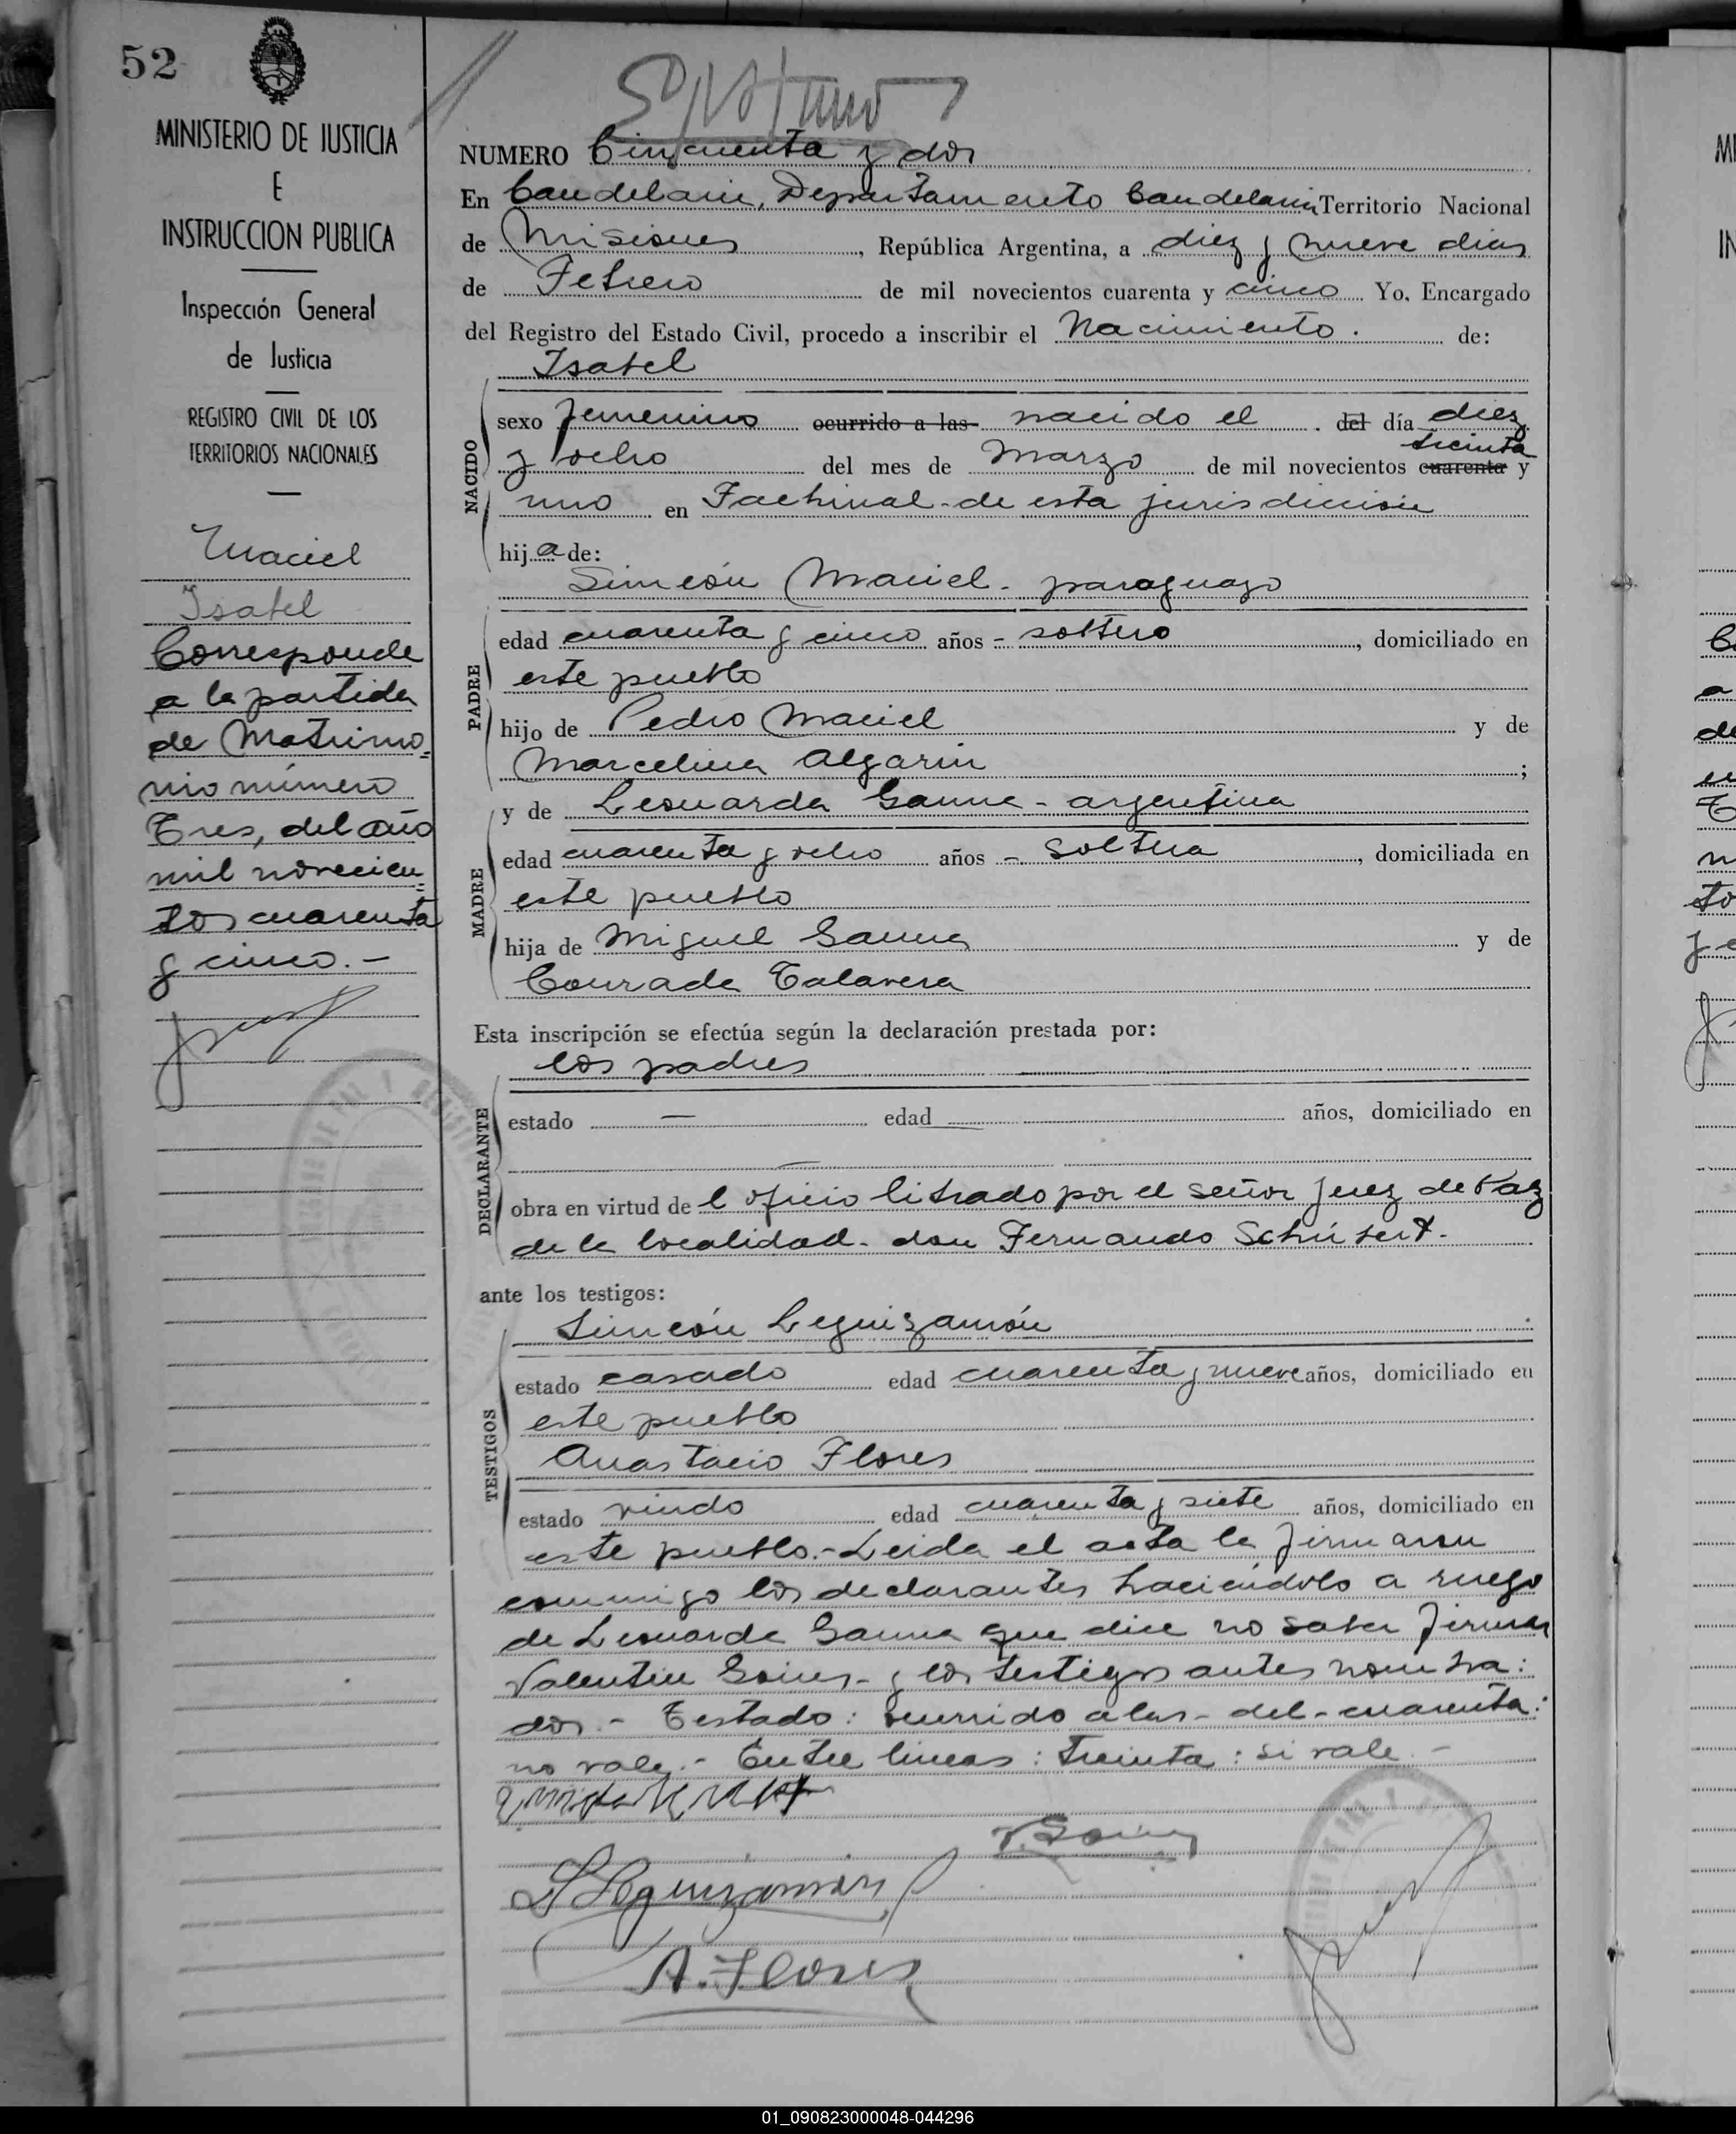 52
MINISTERIO DE JUSTICIA
E
INSTRUCCION PUBLICA
Inspección General
de Justicia
REGISTRO CIVIL DE LOS
TERRITORIOS NACIONALES
Maciel
Isabel
Corresponde
a la partida
de Matrimo=
nio número
Tres, del año
mil novecien=
tos cuarenta
y cinco.-
NUMERO Cincuenta y dos
En Candelaria, Departamento Candelaria Territorio Nacional
de Misiones, República Argentina, a diez y nueve dias
de Febrero de mil novecientos cuarenta y cinco Yo, Encargado
del Registro del Estado Civil, procedo a inscribir el Nacimiento. de:
Isabel
NACIDO
sexo femenino ocurrido a las nacido el . del día diez
treinta
y ocho del mes de Marzo de mil novecientos cuarenta y
uno en Fachinal-de esta jurisdicción
hija de:
Simeón Maciel- paraguayo
PADRE
edad cuarenta y cinco años - soltero, domiciliado en
este pueblo
hijo de Pedro Maciel y de
Marcelina Algarin;
MADRE
y de Leonarda Gauna- argentina
edad cuarenta y ocho años - soltera, domiciliada en
este pueblo
hija de Miguel Gauna y de
Conrada Talavera
Esta inscripción se efectúa según la declaración prestada por:
los padres
DECLARANTE
estado — edad años, domiciliado en
obra en virtud de l oficio librado por el señor Juez de Paz
de la localidad- don Fernando Schúbert-
ante los testigos:
Simeón Leguizamón
TESTIGOS
estado casado edad cuarenta y nueve años, domiciliado en
este pueblo
Anastacio Flores
estado viudo edad cuarenta y siete años, domiciliado en
este pueblo.-Leida el acta la firmaron
conmigo los declarantes haciéndolo a ruego
de Leonarda Gauna que dice no saber firmar
Valentin - y los testigos antes nombra:
dos.- Testado: ocurrido a las- del-cuarenta:
no vale.- Entre lineas: treinta: si vale.-
S Leguizamón
A. Flores
01_090823000048-044296